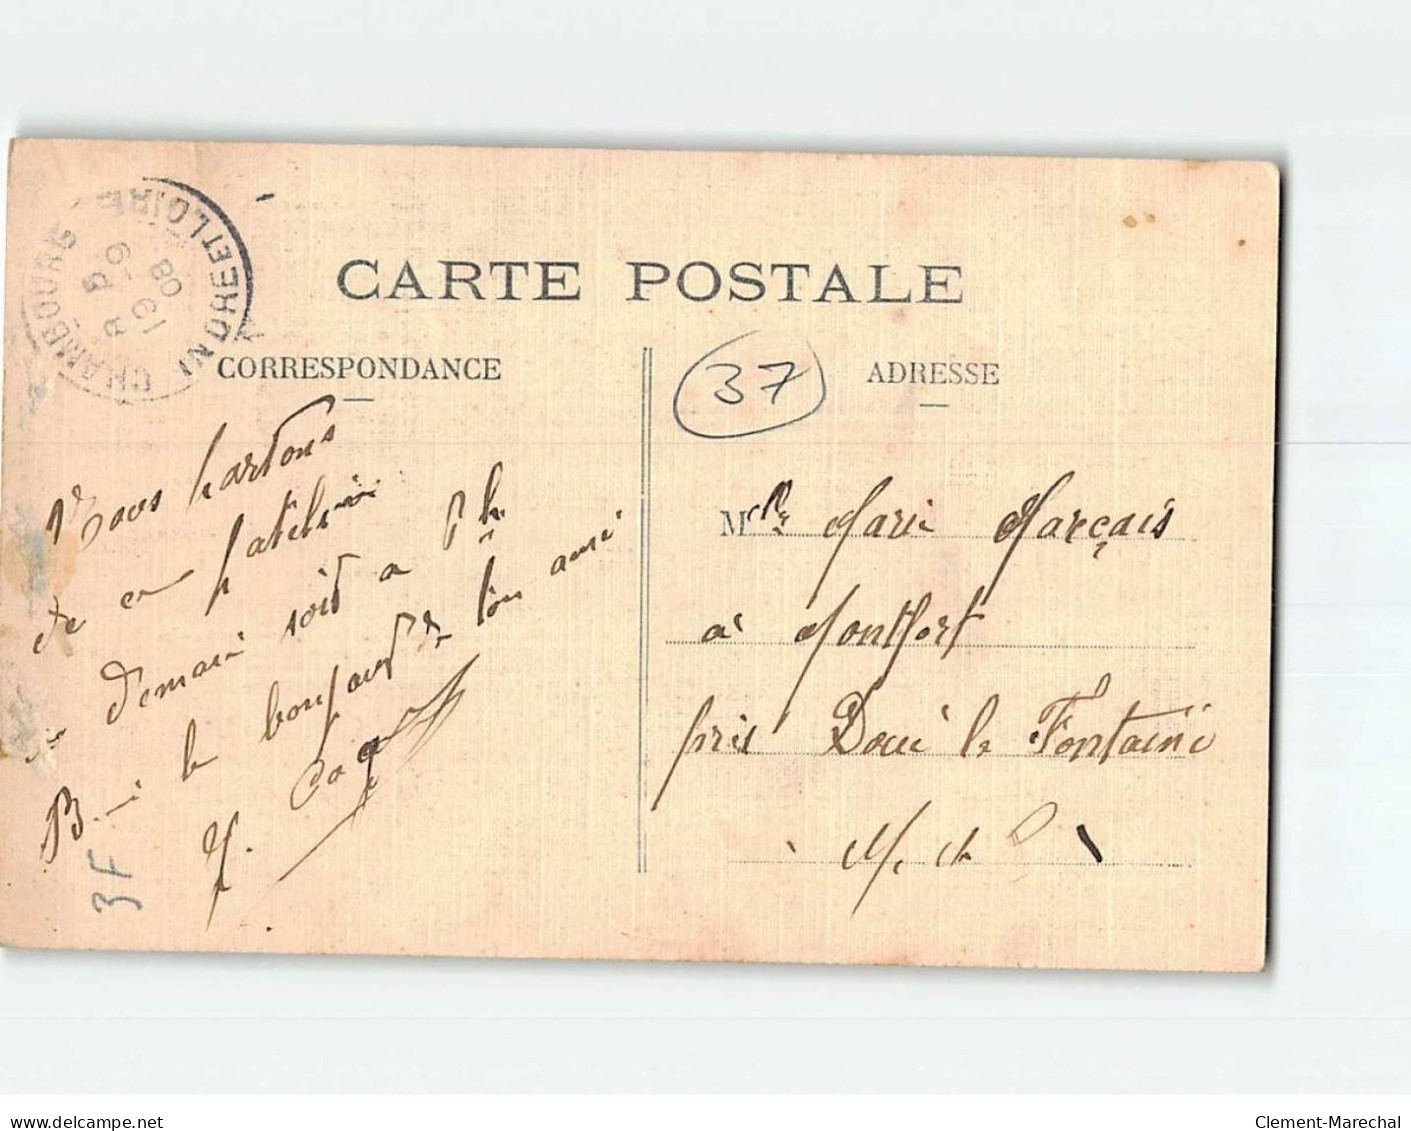 CHAMBOURG
INDRE ET LOIRE
19-9
08
CARTE POSTALE
CORRESPONDANCE
ADRESSE
37
Nous partons
de
demain soir a
B. le bonjour de ton ami
3F
Melle Marie Marçais
à Montfort
près Doué la Fontaine
M. et L
delcampe.net
Clement-Marechal